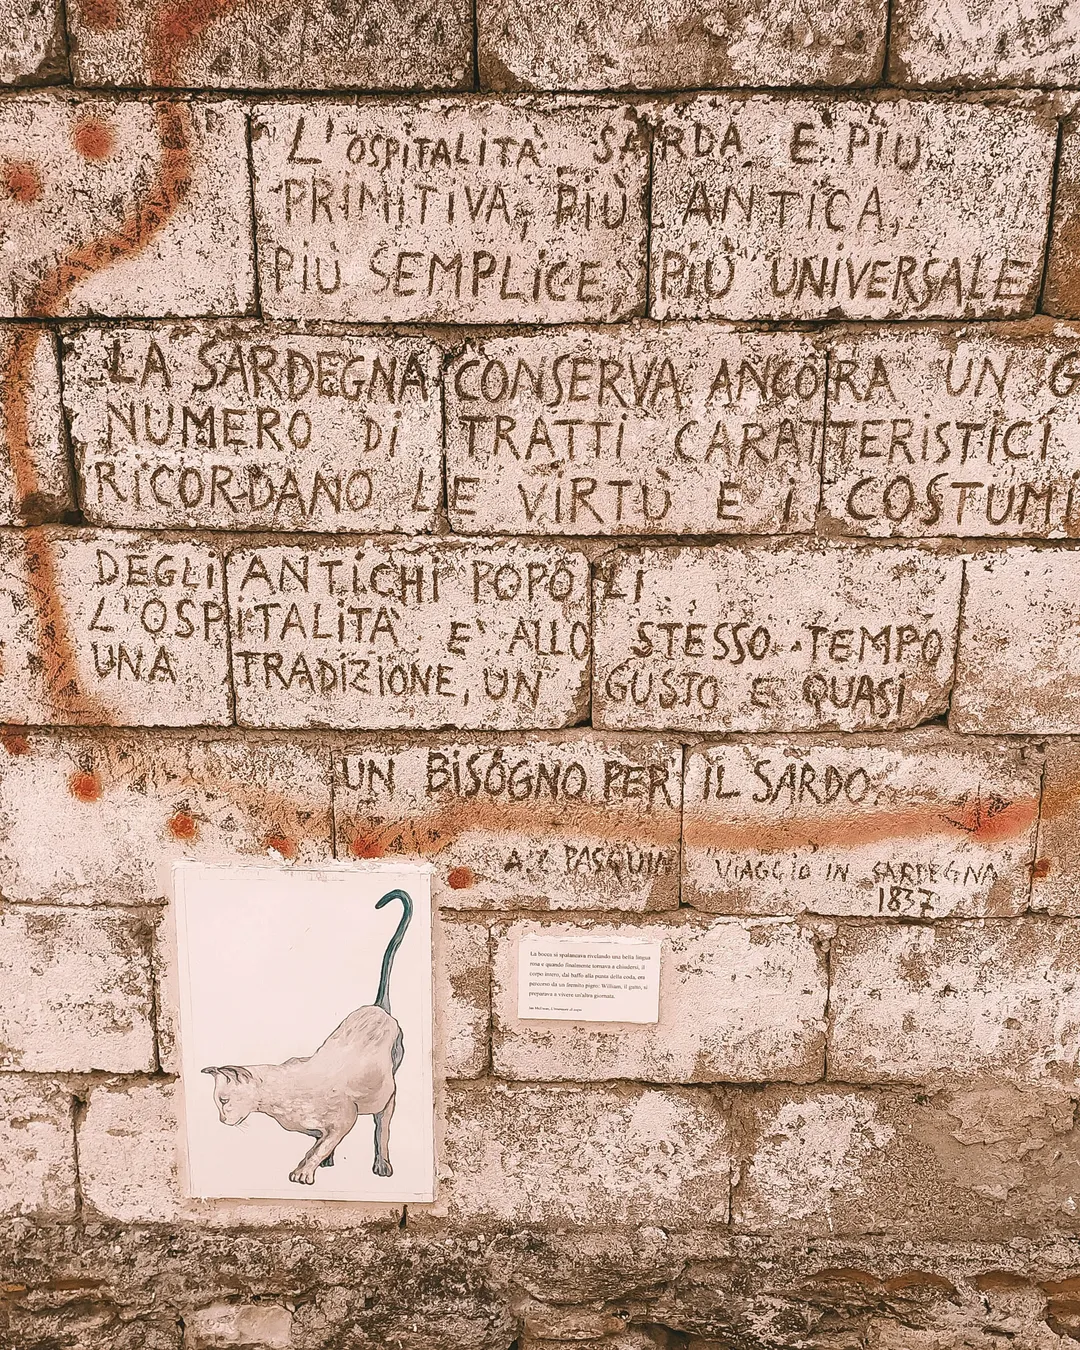 L'OSPITALITÀ SARDA E PIÙ
PRIMITIVA, PIÙ ANTICA,
PIÙ SEMPLICE, PIÙ UNIVERSALE
LA SARDEGNA CONSERVA ANCORA UN G
NUMERO Di TRATTI CARATTERISTICI
RICORDANO LE VIRTÙ E i COSTUMI
DEGLI ANTICHI POPOLI
L'OSPITALITÀ E' ALLO STESSO TEMPO
UNA TRADIZIONE, UN GUSTO E QUASI
UN BISOGNO PER IL SARDO.
A. PASQUIN "VIAGGIO IN SARDEGNA"
1837
La bocca si spalancava rivelando una bella lingua
rosa e quando finalmente tornava a chiudersi, il
corpo intero, dal baffo alla punta della coda, era
percorso da un fremito pigro: William, il gatto, si
preparava a vivere un'altra giornata.